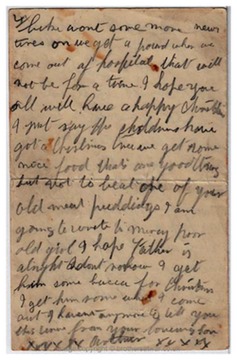 wont some more new
ones on we get a pound when we
come out of hospital that will
not be for a time I hope you
all will have a happy
I
got a Christmas because get some
nice food thats one good thing
but not to beat one of your
old meat puddings I am
going to write to mercy poor
old girl I hope Father is
alright I dont I get
him some bacca for
I get him some when I come
out I havent anymore to tell you
this time from your loving son
xxxxx xxxxx